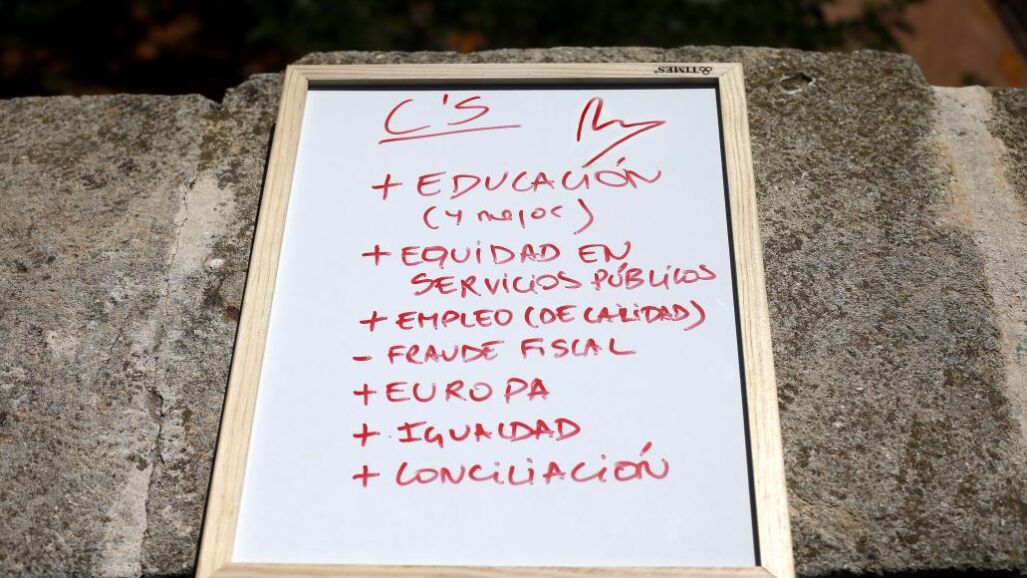 TIMES®
C'S
+ EDUCACIÓN
(y mejor)
+ EQUIDAD EN
SERVICIOS PÚBLICOS
+ EMPLEO (DE CALIDAD)
- FRAUDE FISCAL
+ EUROPA
+ IGUALDAD
+ CONCILIACIÓN